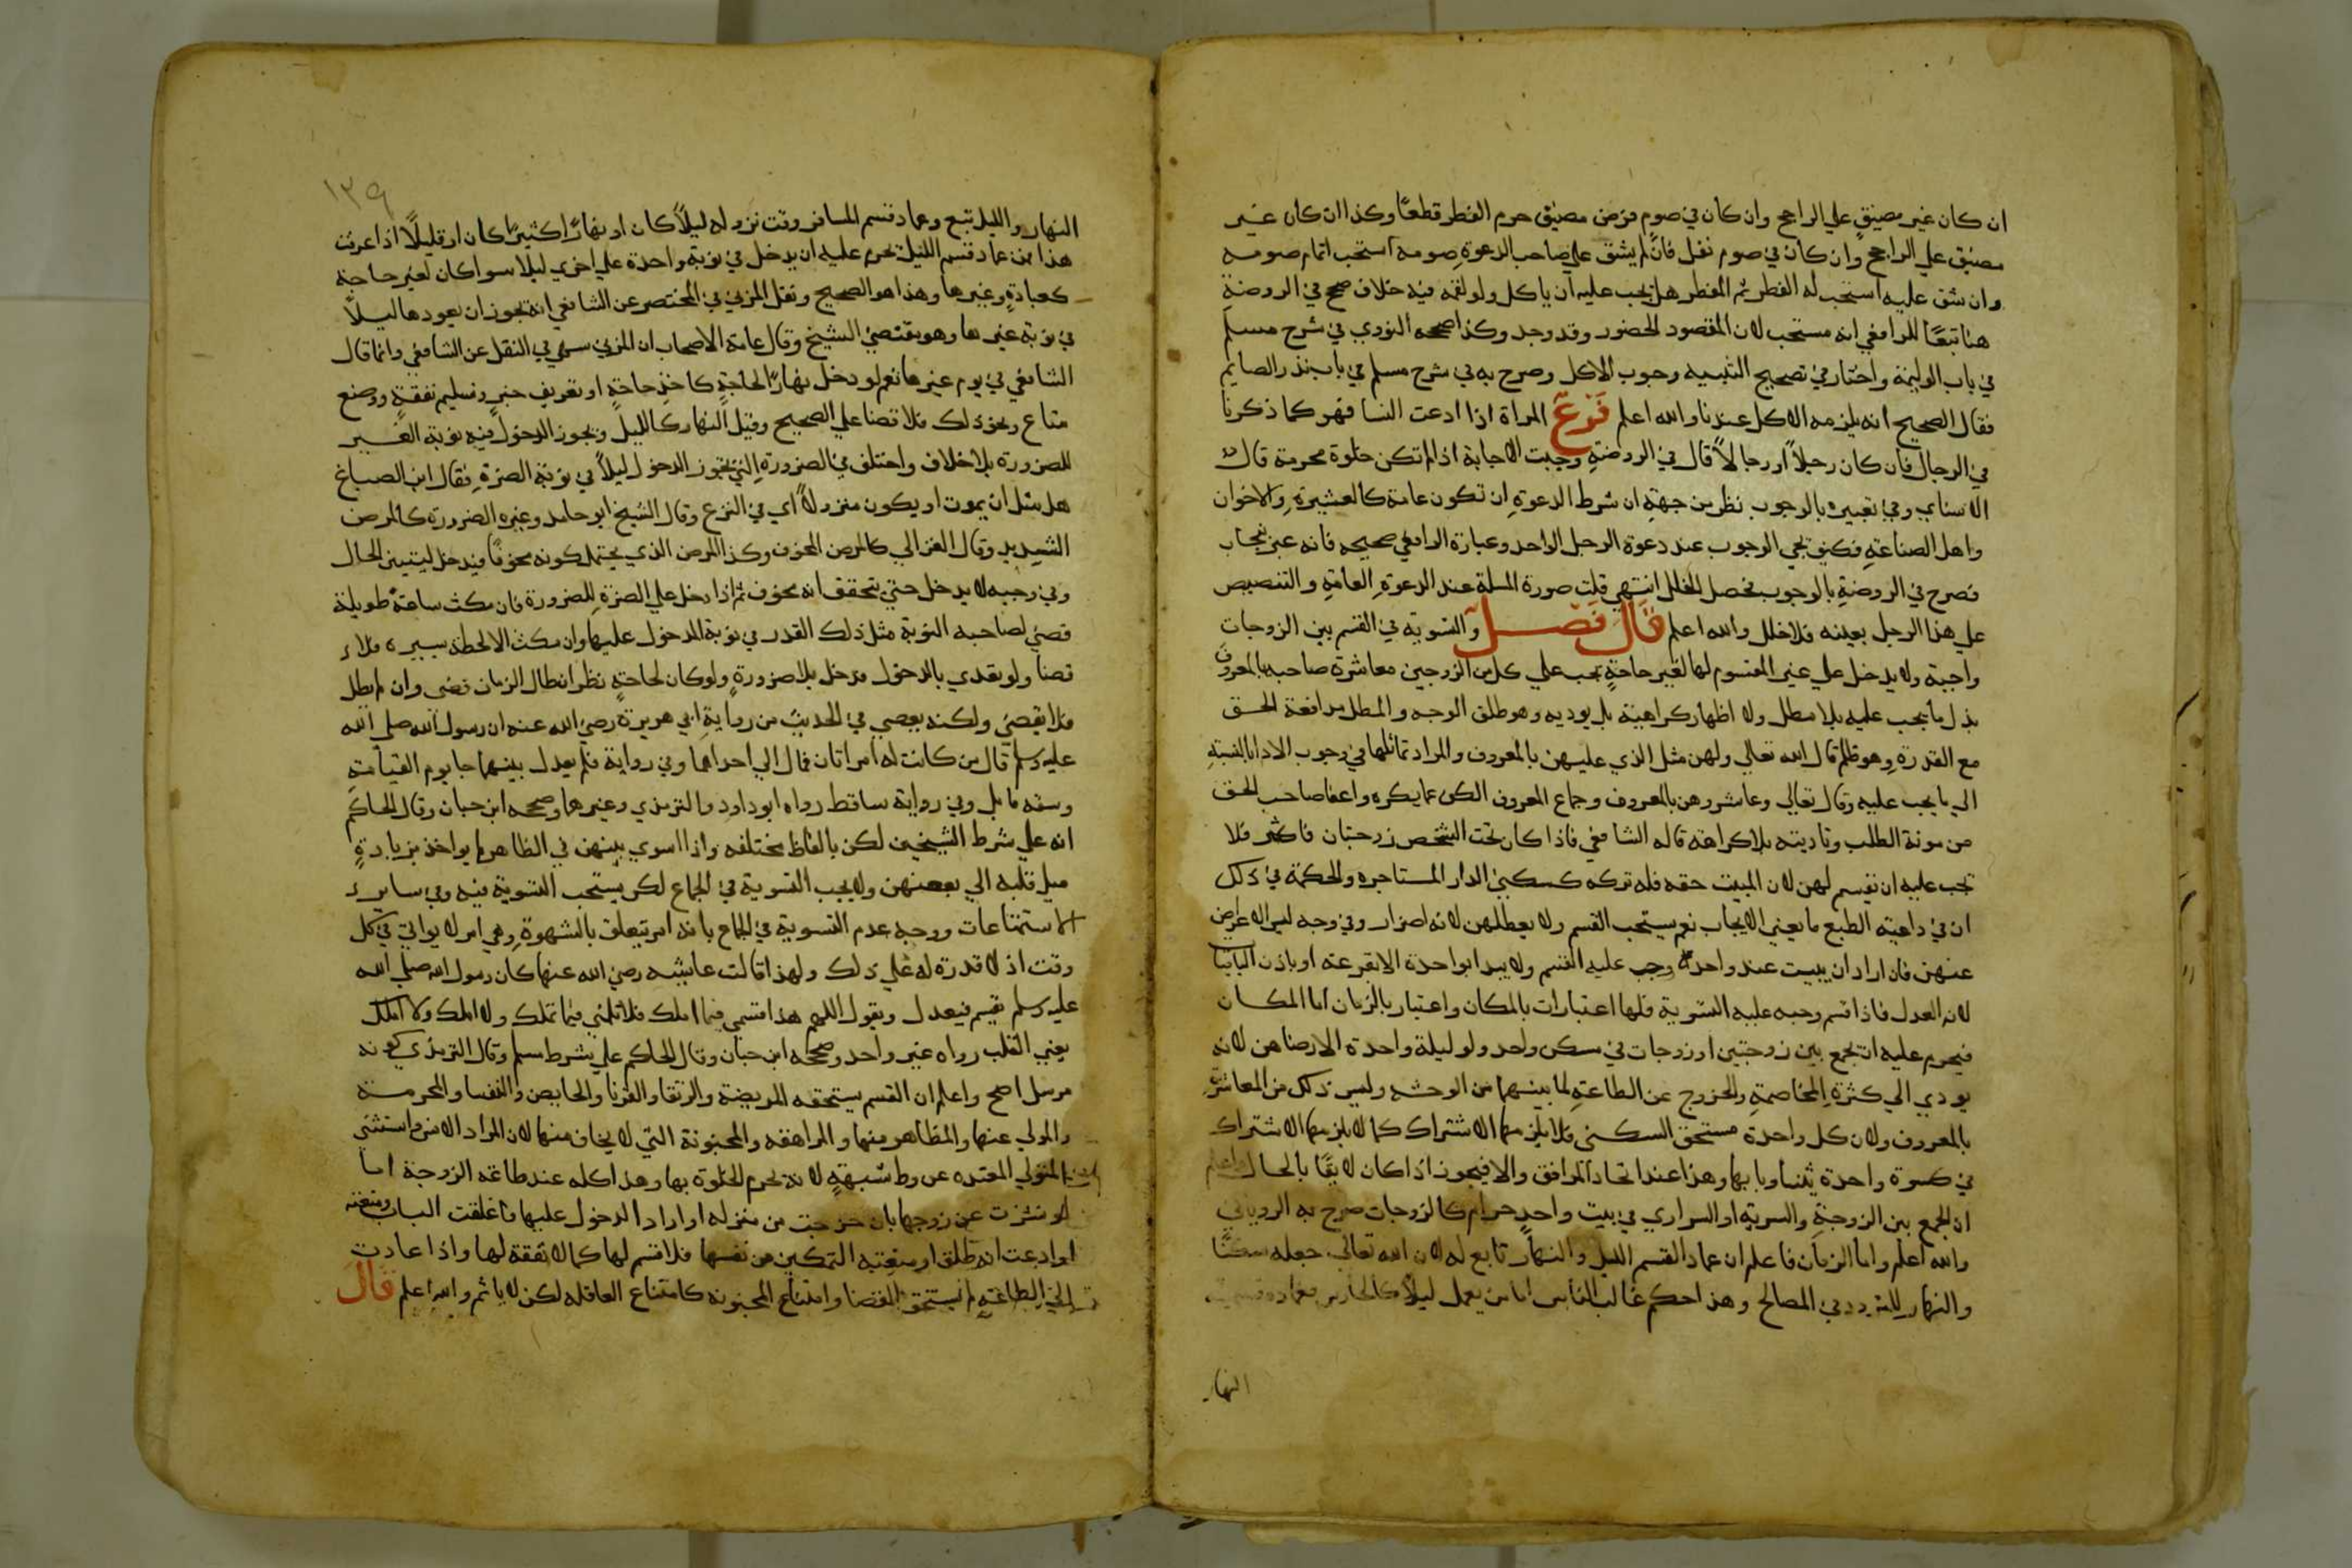 ان كان غير مضيق علي الراجح وان كان في صوم فرض مضيق حرم الفطر قطعًا وكذا ان كان غير
مضيق علي الراجح وان كان في صوم نفل فان لم يشق علي صاحب الدعوة صومه استحب اتمام صومه
وان شق عليه استحب له الفطر ثم المفطر هل يجب عليه ان ياكل ولو لقمه فيه خلاف صحح في الروضة
هنا تبعًا للرافعي انه مستحب لان المقصود الحضور وقد وجد وكذا صححه النووي في شرح مسلم
في باب الوليمة واختار في تصحيح التنبيه وجوب الاكل وصرح به في شرح مسلم في باب نذر الصايم
فقال الصحيح انه يلزمه الاكل عندنا والله اعلم فرع المراة اذا ادعت النسا فهو كما ذكرنا
في الرجال فان كان رجلاً او رجالاً قال في الروضة وجبت الاجابة اذا لم تكن خلوة محرمة قال
الاسناي وفي تعبيره بالوجوب نظر من جهة ان شرط الدعوة ان تكون عامة كالعشيرة والاخوان
واهل الصناعة فكيف يجي الوجوب عند دعوة الرجل الواحد وعبارة الرافعي صحيحه فانه عبر
فصرح في الروضة بالوجوب فحصل الخلل انتهي قلت صورة المسلة عند الدعوة العامة والتنصيص
علي هذا الرجل بعينه فلا خلل والله اعلم قال فصل والتسوية في القسم بين الزوجات
واجبة ولا يدخل علي غير المقسوم لها لغير حاجة يجب علي كل من الزوجين معاشرة صاحبه بالمعروف
بذل ما يجب عليه بلا مطل ولا اظهار كراهية بل يوديه وهو طلق الوجه والمطل مدافعة الحق
مع القدرة وهو ظلم قال الله تعالي ولهن مثل الذي عليهن بالمعروف والمراد تماثلهما في وجوب الادا بالنسبة
الي ما يجب عليه وقال تعالي وعاشروهن بالمعروف وجماع المعروف الكف عما يكره واعفا صاحب الحق
من مونة الطلب وتاديته بلا كراهة قاله الشافعي فاذا كان تحت الشخص زوجتان فاكثر فلا
تجب عليه ان يقسم لهن لان المبيت حقه فله تركه كسكني الدار المستاجره والحكمة في ذلك
ان في داعية الطبع ما يغني الايجاب نعم يستحب القسم ولا يعطلهن لانه اضرار وفي وجه ليس له الاعراض
عنهن فان اراد ان يبيت عند واحدة وجب عليه القسم ولا يبدا بواحدة الا بقرعة او باذن الباقيات
لانه العدل فاذا قسم وجبه عليه التسوية فلها اعتبارات بالمكان واعتبار بالزمان اما المكان
فيحرم عليه ان يجمع بين زوجتين او زوجات في مسكن واحد ولو ليلة واحدة الا برضاهن لانه
يودي الي كثرة المخاصمة والخروج عن الطاعة لما بينهما من الوحشه وليس ذلك من المعاشرة
بالمعروف ولان كل واحدة مستحق السكني فلا يلزمهما الاشتراك كما لا يلزمهما الاشتراك
في كسوة واحدة يتناوبا بها وهذا عند اتحاد المرافق والا فيجوز اذا كان لايقًا بالحال واعلم
ان الجمع بين الزوجة والسرية او السراري في بيت واحد حرام كالزوجات صرح به الروياني
والله اعلم واما الزمان فاعلم ان عماد القسم الليل والنهار تابع له لان الله تعالي جعله سكنًا
والنهار للتردد في المصالح وهذا حكم غالب الناس اما من يعمل ليلاً كالحارس فعماد قسمه
النهار
١٣٩
النهار والليل تبع وعماد قسم المسافر وقت نزوله ليلاً كان او نهارًا كثيرًا كان او قليلاً اذا عرفت
هذا فمن عماد قسمه الليل يحرم عليه ان يدخل في نوبة واحدة علي اخري ليلا سوا كان لغير حاجة
كعبادة وغيرها وهذا هو الصحيح ونقل المزني في المختصر عن الشافعي انه يجوز ان يعودها ليلاً
في نوبة غيرها وهو يقتضي الشيخ وقال عامة الاصحاب ان المزني سهي في النقل عن الشافعي وانما قال
الشافعي في يوم غيرها نعم لو دخل نهارًا لحاجة كاخذ حاجة او تعريف خبر وتسليم نفقة ووضع
متاع ونحو ذلك فلا قضا علي الصحيح وقيل النهار كالليل ويجوز الدخول فيه نوبة الغير
للضرورة بلا خلاف واختلف في الضرورة التي يجوز الدخول ليلاً في نوبة الضرة فقال ابن الصباغ
هل مثل ان يموت او يكون منزولاً اي في النزع وقال الشيخ ابو حامد وغيره الضرورة كالمرض
الشديد وقال الغزالي كالمرض المخوف وكذا المرض الذي يحتمل كونه مخوفًا فيدخل ليتبين الحال
وفي وجه لا يدخل حتي يتحقق انه مخوف ثم اذا دخل علي الضرة للضرورة فان مكث ساعة طويلة
قضي لصاحبه النوبة مثل ذلك القدر في نوبة المدخول عليها وان مكث الالحظة يسيرة فلا
قضا ولو تعدي بالدخول فدخل بلا ضرورة ولو كان لحاجة نظر ان طال الزمان قضي وان لم يطل
فلا يقضي ولكنه يعصي في الحديث من رواية ابي هريرة رضي الله عنه ان رسول الله صلي الله
عليه وسلم قال من كانت له امراتان فمال الي احداهما وفي رواية فلم يعدل بينهما جا يوم القيامة
وشقه مايل وفي رواية ساقط رواه ابو داود والترمذي وغيرهما وصححه ابن حبان وقال الحاكم
انه علي شرط الشيخين لكن بالفاظ مختلفه واذا اسوي بينهن في الظاهر لم يواخذ بزيادة
ميل قلبه الي بعضهن ولا يجب التسوية في الجماع لكن يستحب التسوية فيه وفي ساير
الاستمتاعات ووجه عدم التسوية في الجماع بانه امر يتعلق بالشهوة وهي امر لا يواتي في كل
وقت اذ لا قدرة له علي ذلك ولهذا قالت عايشه رضي الله عنها كان رسول الله صلي الله
عليه وسلم يقسم فيعدل ويقول اللهم هذا قسمي فيما املك فلا تلمني فيما تملك ولا املك ولا املك
يعني القلب رواه غير واحد وصححه ابن حبان وقال الحاكم علي شرط مسلم وقال الترمذي كونه
مرسل اصح واعلم ان القسم يستحقه المريضة والرتقا والقرنا والحايض والنفسا والمحرمة
والمولي عنها والمظاهر منها والمراهقه والمجنونة التي لا يخاف منها لان المراد الانس واستثني
المتولي المعتده عن وط شبهة لانه تحرم الخلوة بها وهذا كله عند طاعة الزوجة اما
لو نشزت عن زوجها بان خرجت من منزله او اراد الدخول عليها فاغلقت الباب ومنعته
او ادعت انه طلق او منعته التمكين من نفسها فلا قسم لها كما لا نفقة لها واذا عادت
الي الطاعة لم تستحق القضا وامتناع المجنونه كامتناع العاقله لكن لا ياثم والله اعلم قال